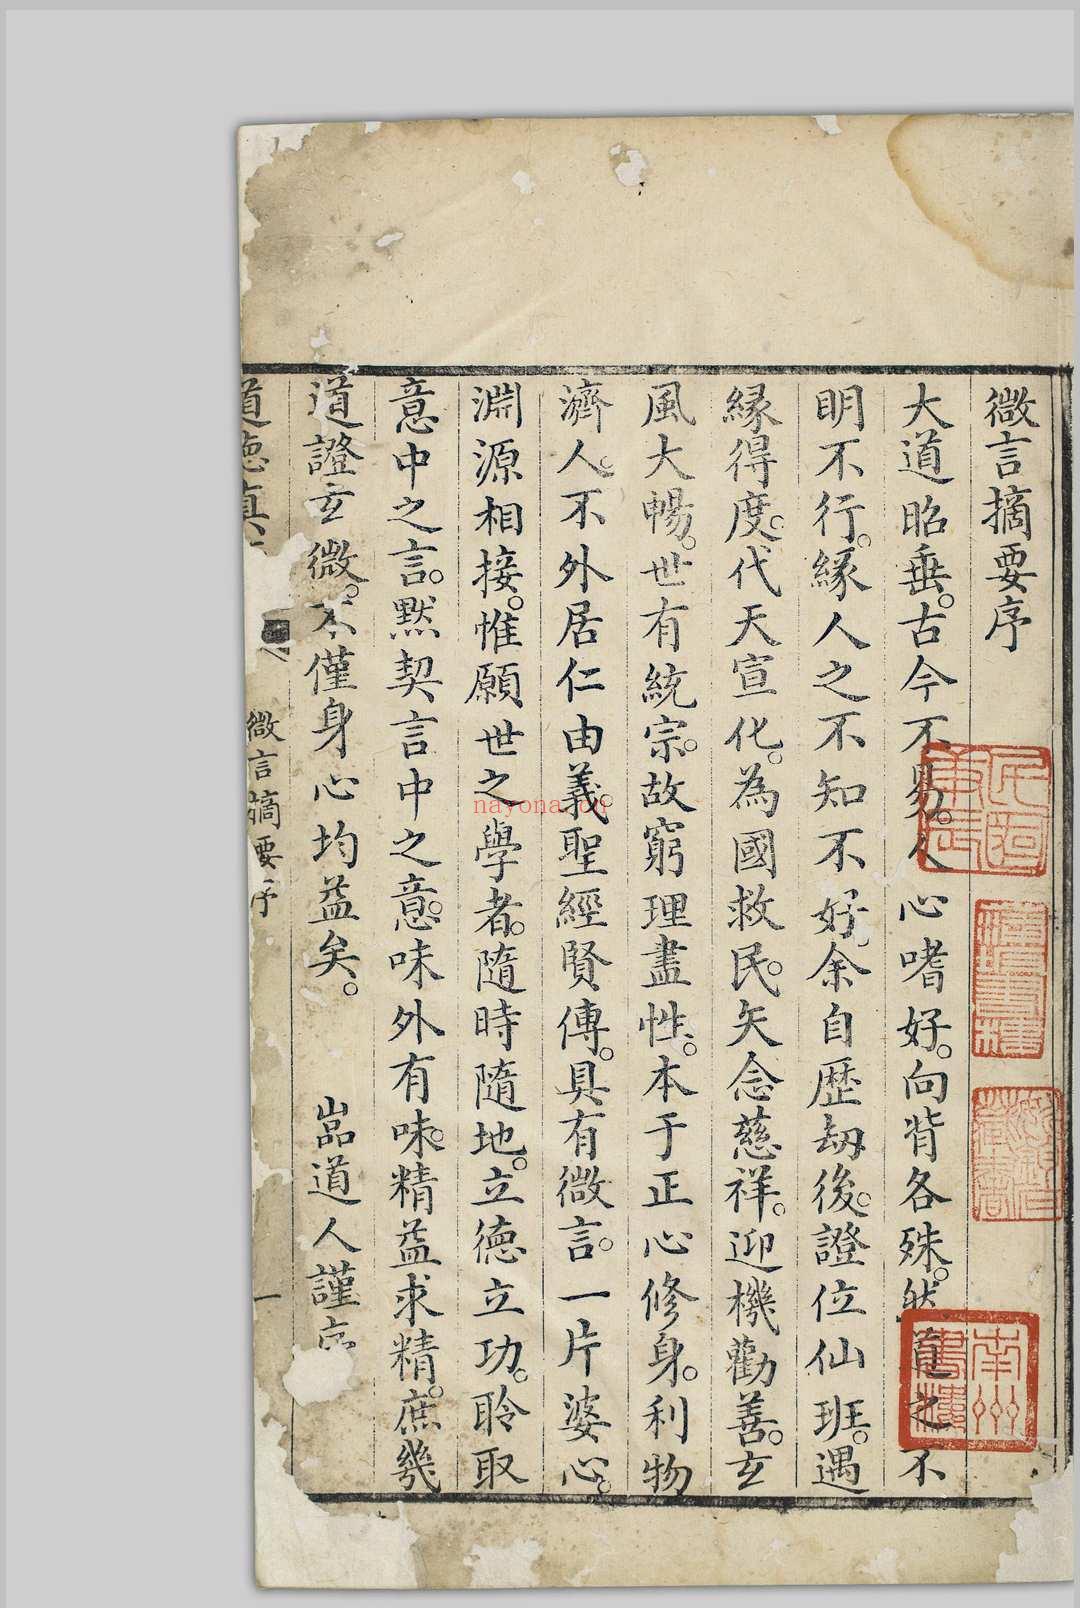 微言摘要序
大道昭垂。古今不易。人心嗜好。向背各殊。然道之不
明不行。緣人之不知不好。余自歷劫後。證位仙班。遇
緣得度。代天宣化。為國救民。矢念慈祥。迎機勸善。玄
風大暢。世有統宗。故窮理盡性。本于正心修身。利物
濟人。不外居仁由義。聖經賢傳。具有微言。一片婆心。
淵源相接。惟願世之學者。隨時隨地。立德立功。聆取
意中之言。默契言中之意。味外有味。精益求精。庶幾
道證玄微。不僅身心均益矣。
嵓道人謹序
道德真
微言摘要序
一
南州書樓
nayona.cn